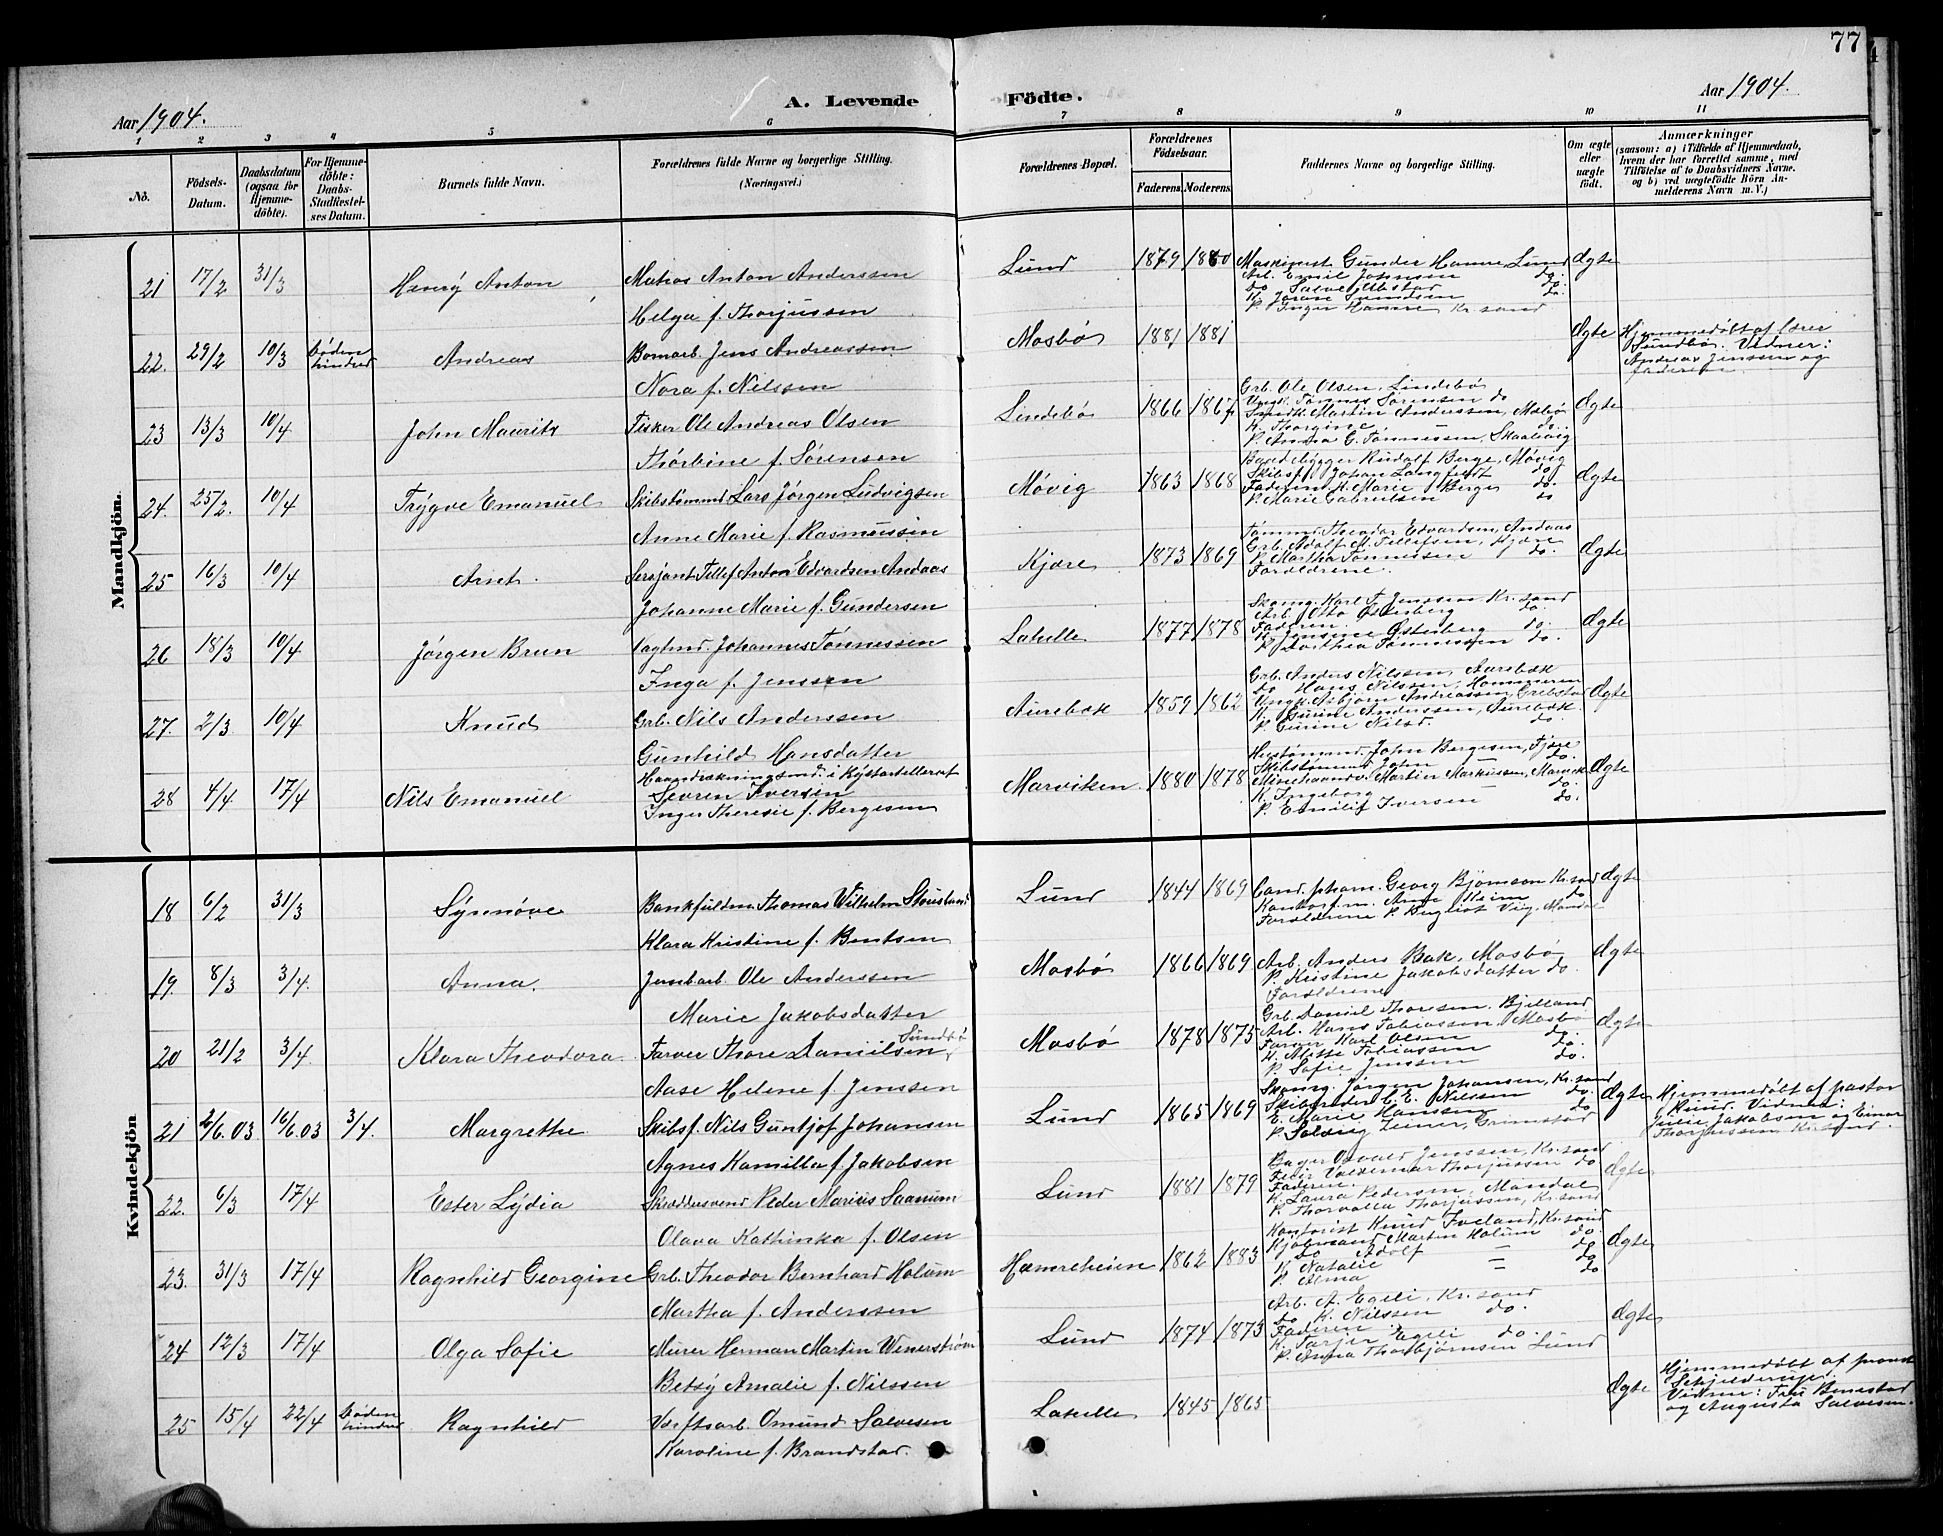 77
Aar 1904.
A. Levende Födte.
Aar 1904.
1 2 3 4 5 6 7 8 9 10 11
No.
Födsels-Datum.
Daabsdatum (ogsaa for Hjemmedöbte).
For Hjemmedöbte: Daabs-Stadfæstelses Datum.
Barnets fulde Navn.
Forældrenes fulde Navne og borgerlige Stilling.
(Næringsvei.)
Forældrenes Bopæl.
Forældrenes Födselsaar.
Faderens. Moderens.
Faddernes Navne og borgerlige Stilling.
Om ægte eller uægte födt.
Anmærkninger
(saasom: a) i Tilfælde af Hjemmedaab, hvem der har forrettet samme, med Tilföielse af to Daabsvidners Navne. og b) ved uægtefödte Börn Anmelderens Navn m. V.)
Mandkjön.
21 17/2 31/3 Henrÿ Anton
Mathias Anton Anderssen
Helga f. Thorjussen
Lund 1879 1880
Maskinist Gunder Hamre Lund
Arb. Emil Johnssen do.
do Salve Ubstad do.
K. Jorine Svendsen do.
P. Inger Hamre Kr.sand
Ægte
22. 29/2 10/3 Döden hindred Andreas
Bomarb. Jens Andreassen
Nora f. Nilssen
Mosbø 1881 1881
Ægte
Hjemmedøbt af lærer
Sundbø. Vidner:
Andreas Jenssen og
faderen.
23 13/3 10/4 John Maurits
Fisker Ole Andreas Olsen
Thorbine f. Sørensen
Lindebø 1866 1867
Grb. Ole Olsen, Lindebø
Ungk. Tønnes Sørensen do
Smedk. Martin Anderssen, Mosbø
K. Thorgine do.
P. Anna G. Tønnessen, Skaalevig
Ægte
24. 25/2. 10/4 Trÿgve Emanuel
Skibstømmd. Lars Jørgen Ludvigsen
Anne Marie f. Rasmussen
Møvig 1863 1868
Baadbygger Rudolf Berge, Møvig
Skibsf. Johan Langfeldt do.
Faderen K. Marie Berge do.
P. Marie Gabrielsen do
Ægte
25 16/3 10/4 Arnt.
Sersjant Tellef Anton Edvardsen Andaas
Johanne Marie f. Gundersen
Kjære 1873 1869
Tømmd. Theodor Edvardsen, Andaas
Grb. Adolf M. Tellefsen, Kjære
P. Martha Tønnessen do.
Forældrene.
Ægte
26 18/3 10/4 Jørgen Brun
Vagtmd. Johannes Tønnessen
Inga f. Jenssen
Lahelle 1877 1878
Skomg. Karl F. Jenssen Kr.sand
Arb. Otto Østerberg do.
Faderen.
K. Jensine Østerberg do.
P. Dorthea Tønnessen do.
Ægte
27. 2/3 10/4 Knud
Grb. Nils Anderssen
Gunhild Hansdatter
Aurebæk 1859 1862
Grb. Anders Nilssen, Aurebæk
do Hans Nilssen, Hommeren
Ungk. Asbjørn Andreassen, Grebstad
K. Gurine Anderssen, Aurebæk
P. Gurine Nilsd. do.
Ægte
28 4/4. 17/4 Nils Emanuel
Haandrækningsmd. i Kÿstartelleriet
Severin Iversen
Inger Theresie f. Bergesen
Marviken. 1880 1878
Hustømmd. John Bergesen, Fjære
Skibstømmd. John — do.
Minehaandv. Martin Markussen, Marvik
K. Ingeborg — do.
P. Emilie Iversen do.
Ægte
Kvindekjön
18 6/2 31/3 Sÿnnöve
Bankfuldm. Thomas Wilhelm
Klara Kristine f. Bentsen
Lund 1844 1869
Cand. pharm. Georg Bjørnson Kr.sand
Kontorfm. Arne Keim do
Forældrene P. Bergliot Vüg, Mandal
Ægte
19. 8/3 3/4. Anna.
Jernbarb. Ole Anderssen
Marie Jakobsdatter
Mosbø 1866 1869
Arb. Anders Bak, Mosbø
P. Kristine Jakobsdatter do.
Forældrene
Ægte
20 21/2 3/4. Klara Theodora
Farver Thore Danielsen Sundbø
Aase Helene f. Jenssen
Mosbø 1878 1875
Grb. Daniel Thoresen, Bjelland
Arb. Hans Tobiassen, Mosbø
Farver Karl Olsen do.
K. Mette Tobiassen do.
P. Sofie Jenssen do.
Ægte
21 2/6.03 16/6.03 3/4. Margrethe
Skibsf. Nils Guntjof Johansen
Agnes Kamilla f. Jakobsen
Lund 1865 1869
Skomg. Jørgen Johansen, Kr.sand
Skibsreder C. E. Nilssen do.
E. Marie Hanssen do
P. Solveig Zeiner, Grimstad
Ægte
Hjemmedøbt af pastor
Ruud. Vidner:
Julie Jakobsen og Einar
Thorjussen Kr.sand.
22. 6/3 17/4 Ester Lÿdia
Skræddersvend Peder Marius Saanum
Olava Kathinka f. Olsen
Lund 1881 1879
Bager Osvald Jenssen, Kr.sand
Feier Valdemar Thorjussen do
Faderen.
K. Laura Pedersen, Mandal
P. Thorvalla Thorjussen, Kr.sand
Ægte
23. 31/3 17/4 Ragnhild Georgine
Grb. Theodor Bernhard Holum
Martha f. Anderssen
Hamreheien 1862 1883
Kontorist Knud Iveland, Kr.sand
Kjøbmand Martin Holum do
do Adolf — do
K. Natalie — do
P. Alma do
Ægte
24 12/3 17/4 Olga Sofie
Murer Herman Martin Wenerstrøm
Betsÿ Amalie f. Nilssen
Lund 1874 1873
Arb. A. Egeli, Kr.sand
do K. Nilssen do.
Faderen.
K. Tarjer Egeli do.
P. Anna Thorbjørnsen Lund
Ægte
25 15/4 22/4 Døden hindred Ragnhild
Værftsarb. Omund Salvesen
Karoline f. Brandstad.
Lahelle 1845 1865
Ægte
Hjemmedøbt af provst
Schjelderup.
Vidner: Fru Benestad
og Augusta Salvesen.